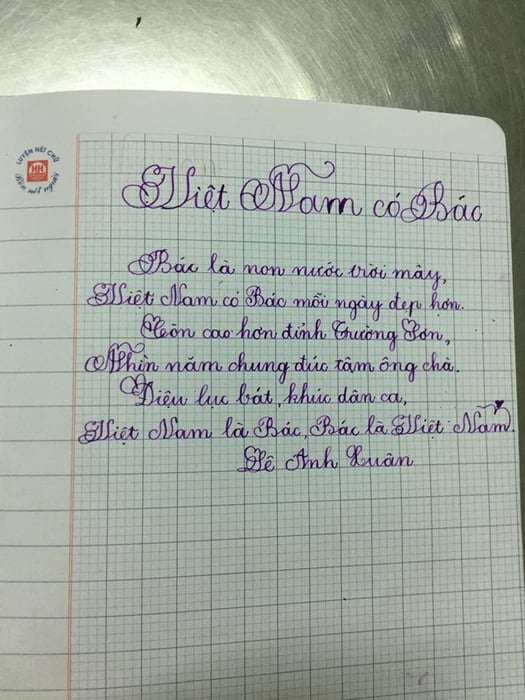 LUYỆN NÉT CHỮ
HH
Rèn nết người
Việt Nam có Bác
Bác là non nước trời mây,
Việt Nam có Bác mỗi ngày đẹp hơn.
Còn cao hơn đỉnh Trường Sơn,
Nghìn năm chung đúc tâm ông cha.
Điệu lục bát, khúc dân ca,
Việt Nam là Bác, Bác là Việt Nam.
Lê Anh Xuân